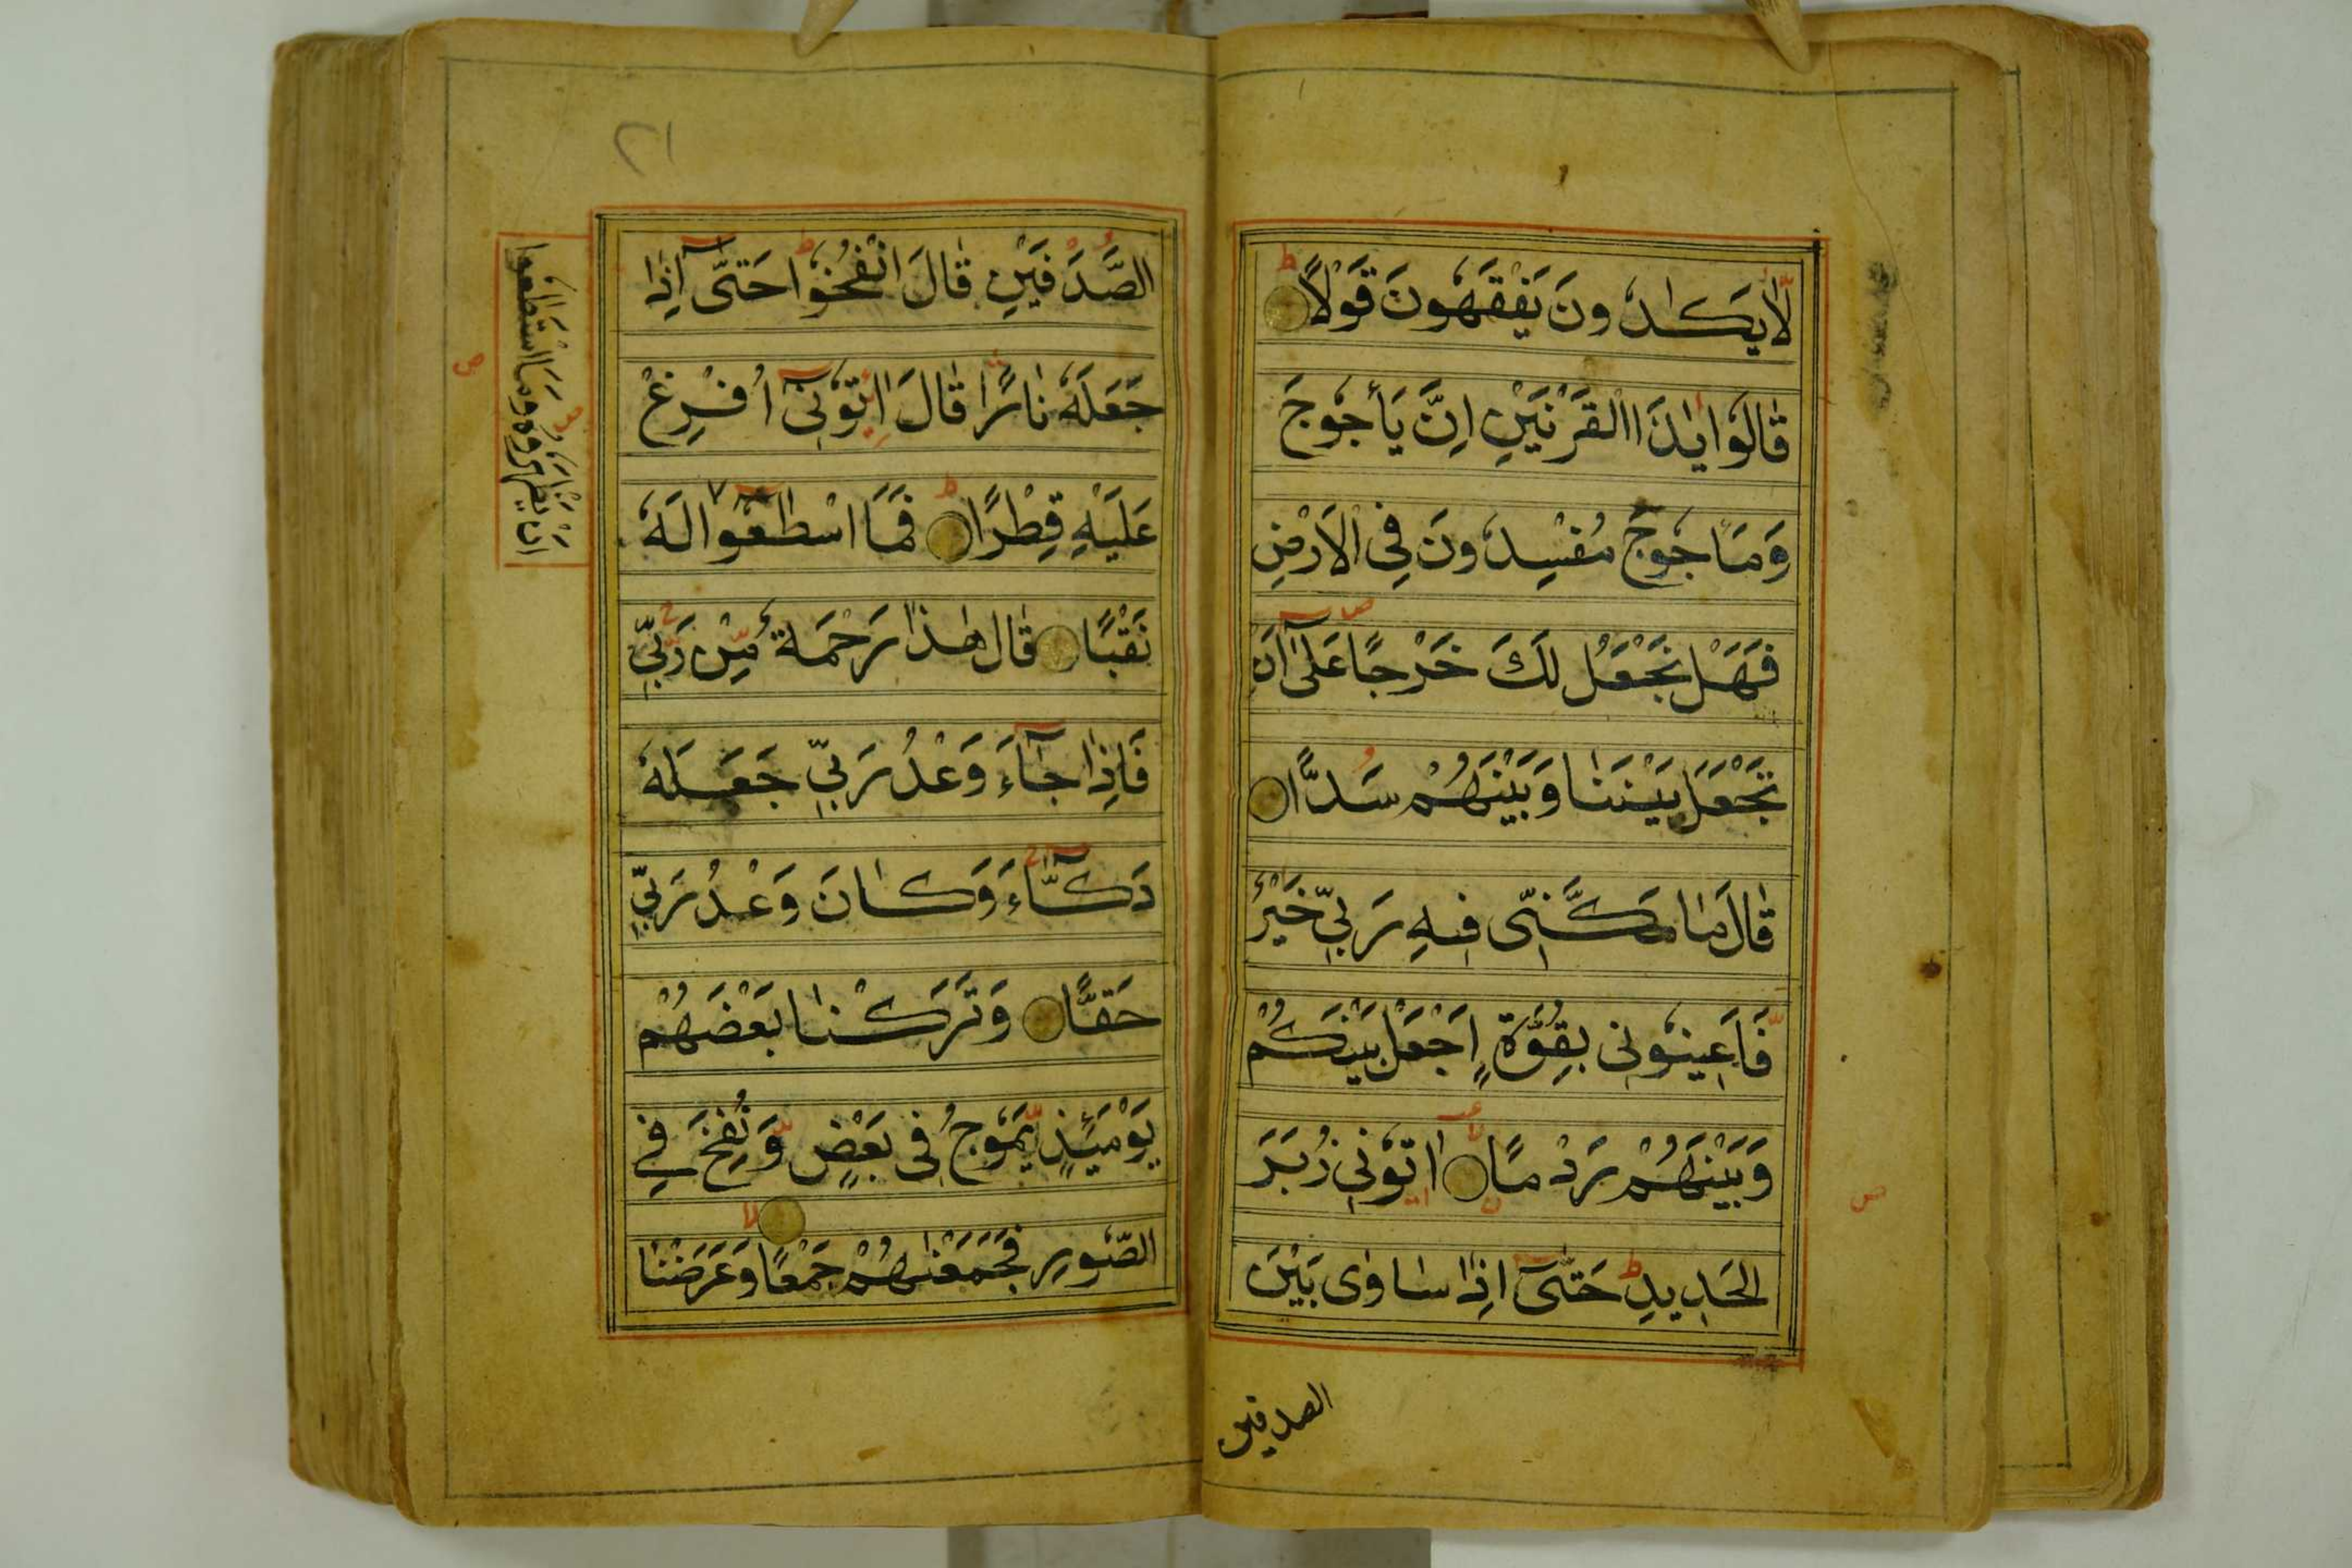 لَّا يَكَادُونَ يَفْقَهُونَ قَوْلًا ط
قَالُوا يٰذَا الْقَرْنَيْنِ اِنَّ يَأْجُوجَ
وَمَاجُوجَ مُفْسِدُونَ فِى الْاَرْضِ
فَهَلْ نَجْعَلُ لَكَ خَرْجًا عَلٰٓى اَنْ
تَجْعَلَ بَيْنَنَا وَبَيْنَهُمْ سَدًّا
قَالَ مَا مَكَّنِّى فِيهِ رَبِّى خَيْرٌ
فَاَعِينُونِى بِقُوَّةٍ اَجْعَلْ بَيْنَكُمْ
وَبَيْنَهُمْ رَدْمًا لا اٰتُونِى زُبَرَ
الْحَدِيدِ ط حَتّٰىٓ اِذَا سَاوٰى بَيْنَ
الصدفين
٢١
الصَّدَفَيْنِ قَالَ انْفُخُوا ط حَتّٰىٓ اِذَا
جَعَلَهٗ نَارًا قَالَ اٰتُونِىٓ اُفْرِغْ
عَلَيْهِ قِطْرًا ط فَمَا اسْطٰعُوٓا لَهٗ
نَقْبًا قَالَ هٰذَا رَحْمَةٌ مِّنْ رَّبِّى
فَاِذَا جَآءَ وَعْدُ رَبِّى جَعَلَهٗ
دَكَّآءَ وَكَانَ وَعْدُ رَبِّى
حَقًّا وَتَرَكْنَا بَعْضَهُمْ
يَوْمَئِذٍ يَّمُوجُ فِى بَعْضٍ وَّنُفِخَ فِى
الصُّورِ فَجَمَعْنٰهُمْ جَمْعًا لا وَعَرَضْنَا